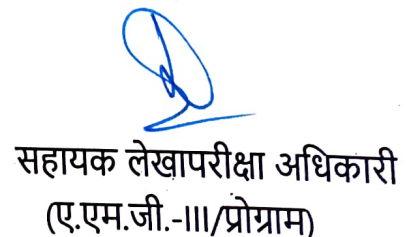 सहायक लेखापरीक्षा अधिकारी
(ए.एम.जी.-III/प्रोग्राम)